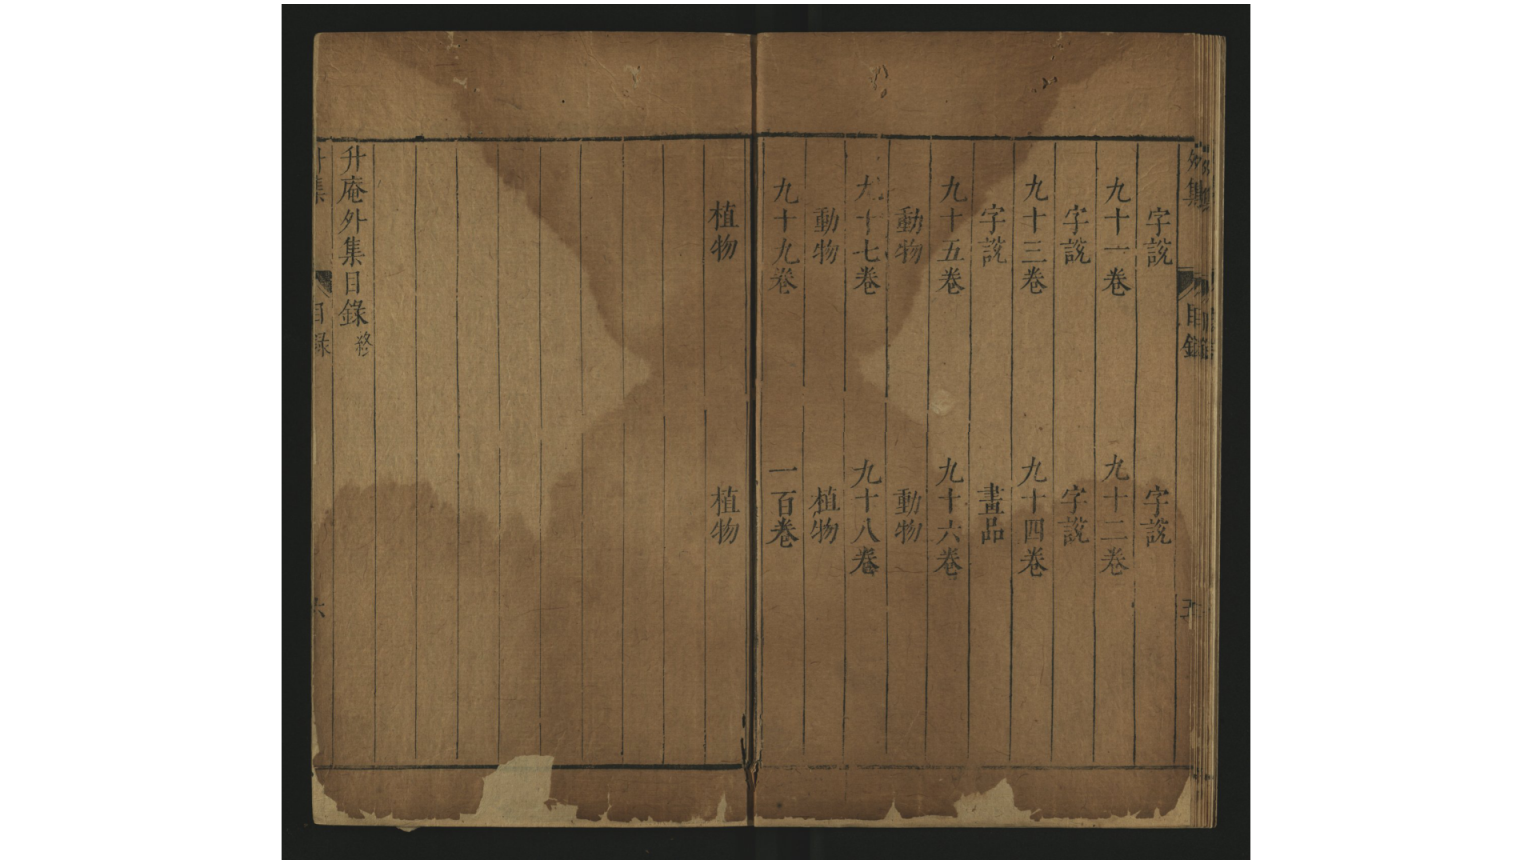 字說　字說
九十一卷　九十二卷
字說　字說
九十三卷　九十四卷
字說　畫品
九十五卷　九十六卷
動物　動物
九十七卷　九十八卷
動物　植物
九十九卷　一百卷
植物　植物
升庵外集目錄終
外集　目錄
集　目錄　六